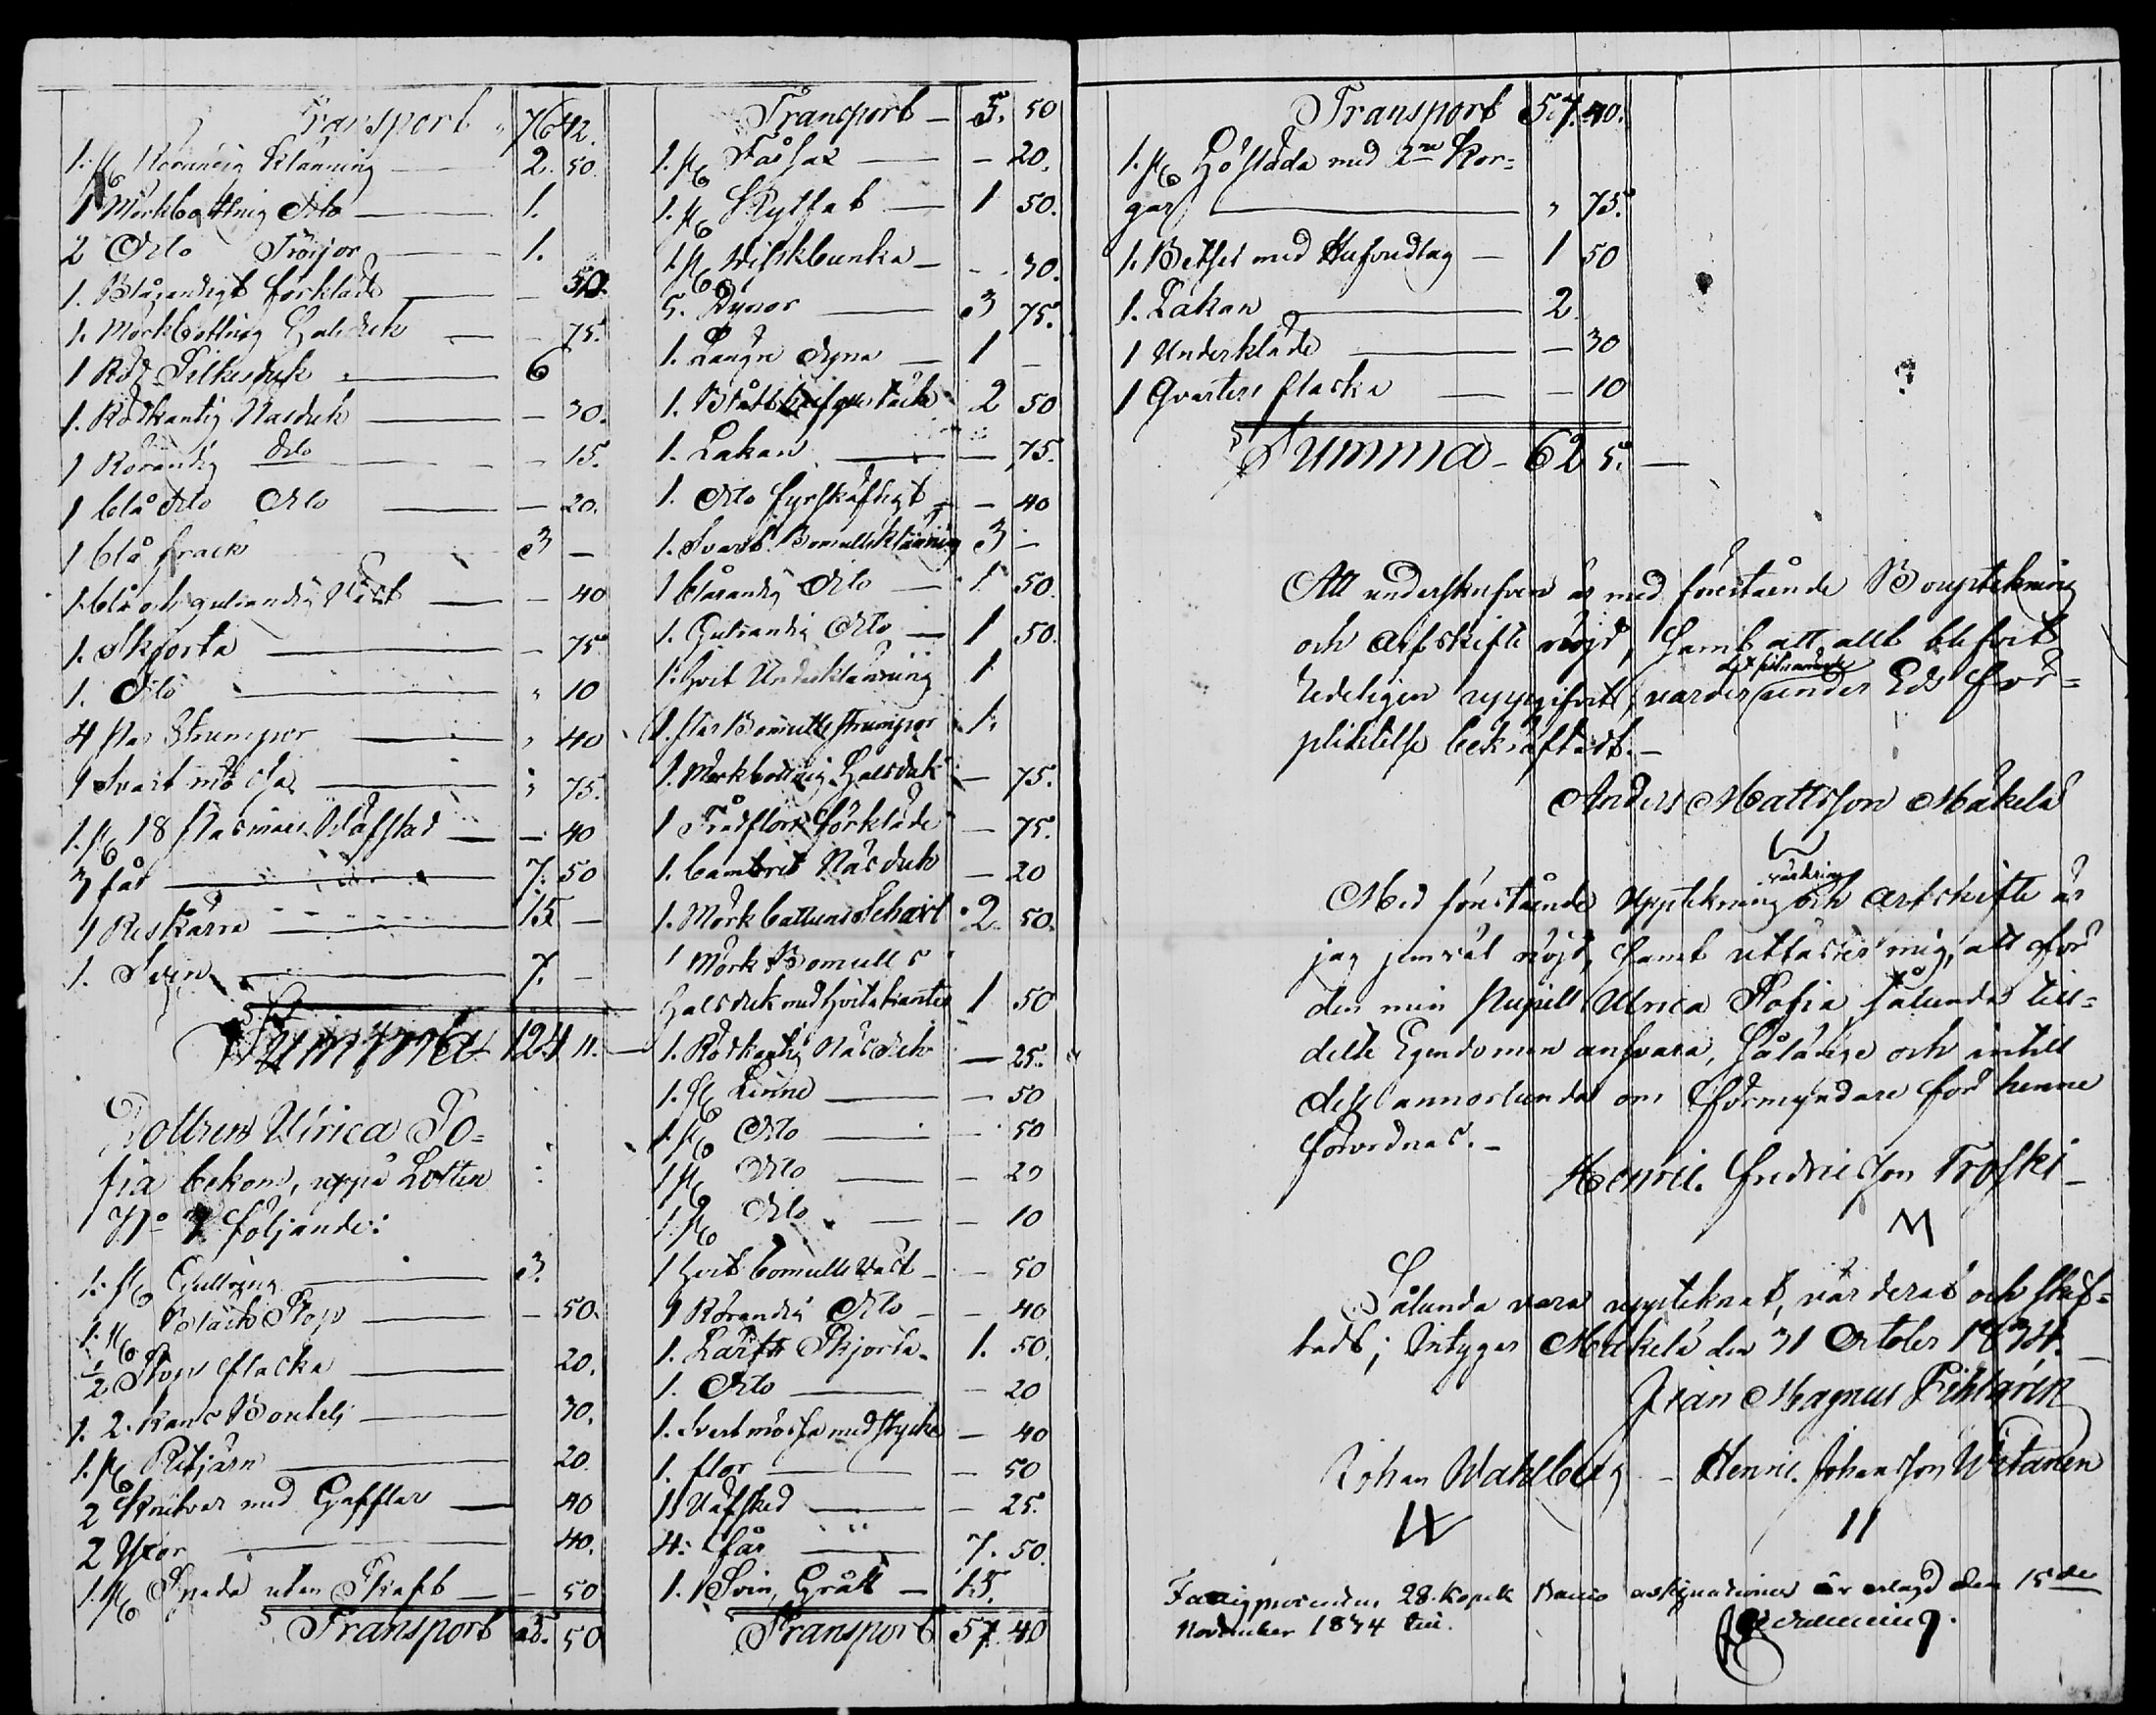 Transport 76 42.
1. st Rörandig Klänning 2. 50.
1 Mörkbottnig dito 1.
2 dito Tröijor 1.
1. Blårandigt förkläde — 50.
1. Mörkbottnig Halsduk — 75.
1 Röd Silkesduk 6
1. Rödkantig Näsduk — 30.
1 Rörandig dito — 15.
1 blå dito dito — 20.
1 blå frack 3 —
1. blå och gulrandig Väst — 40
1. Skjorta — 75
1. dito " 10
4 par Strumpor " 40
1 Svart mössa " 75.
1. st 18 Väfsked — 40
3 får 7. 50
1 Reskärra 15 —
1. Svin 7. —
Summa 124 11. —
Dottren Ulrica So=
fia bekom, uppå Lotten
No 3 följande:
1. st Gullring 3.
1. st Bläck Stop — 50.
1/2 Stops flaska 20.
1. 2. kans Boutelj 30.
1. st Ritjärn 20.
2 Knifvar med Gafflar 40
2 Yxor 40.
1. st Spada utan Skaft — 50
Transport 5. 50
Transport — 5. 50
1. st Fåsax — 20.
1. st Skyttat 1 50.
1. st bunka — 30.
5. Dynor 3 75.
1. Långe dyna 1 —
1. Blått täcke 2 50
1. Lakan — 75.
1. dito fyrskäftigt — 40
1. Svart Bomullsklänning 3 —
1 blårandig dito 1 50.
1. Gulrandig dito 1 50.
1. Hvit Underklänning 1
1. par Bomulls strumpor 1.
1. Mörkbottnig Halsduk — 75.
1 Trådflors förkläde — 75.
1. Cambrits Näsduk — 20
1. Mörk Cattuns Schavl 2 50.
1 Mörk Bomulls
Halsduk med hvita kanter 1 50
1. Rödkantig Näsduk — 25.
1. st Linne — 50
1. st dito — 50
1 st dito — 20
1. st dito — 10
1 Hvit bomulls Väst — 50
1 Rörandig dito — 40
1. Lärfts Skjorta 1. 50.
1. dito — 20
1. Svart mössa med stycke — 40
1. flor — 50
1 Väfsked — 25.
4. får 7. 50.
1. Svin, Grått — 15.
Transport 57. 40
Transport 57. 40.
1. st Höstada med 2ne Kor=
gar " 75.
1. Betsel med Hufvudlag 1 50
1. Lakan 2
1 Underkläde — 30
1 Qvarters flaska — 10
Summa 62 5. —
Att underskrifven är med förestående Bouptekning
och Arfskifte nöjd, samt att allt blifvit
redeligen uppgifvit, varder under Eds för=
pliktelse bekräftadt. —
Anders Mattsson Mäkelä
Med förestående Upptekning värdring och Arfskifte är
jag jemväl nöjd, samt utfäster mig, att för
den min Pupill Ulrica Sofia sålunda till=
delte Egendomen ansvara, så länge och intill
dess annorlunda om förmyndare för henne
förordnas. —
Henric Fredricsson Troski —
M
Sålunda vara upptecknat, värderat och skif=
tadt; Intygar Mäkelä den 31 October 1834.
Jöran Magnus
Johan Wahlberg — Henric Johansson Witanen
W 11
Fattigprocenten 28. Kopek Banco assignationer är erlagd den 15de
November 1834